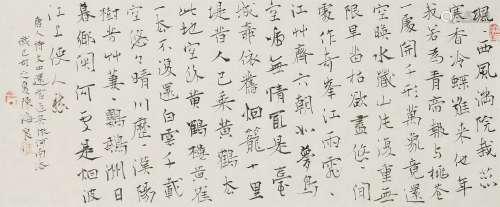 颯西風滿院栽蕊
寒香冷蝶難來他年
我若為青帝報與桃花
一處開千形萬象竟還
空映水藏山片復重無
限旱苗枯欲盡悠〻閒
處作奇峰江雨霏〻
江草齊六朝如夢鳥
空啼無情最是臺
城柳依舊烟籠十里
堤昔人已乘黃鶴去
此地空餘黃鶴樓黃鶴
一去不復返白雲千載
空悠〻晴川歷〻漢陽
樹芳草萋〻鸚鵡洲日
暮鄉關何處是烟波
江上使人愁
唐人詩
陳海良